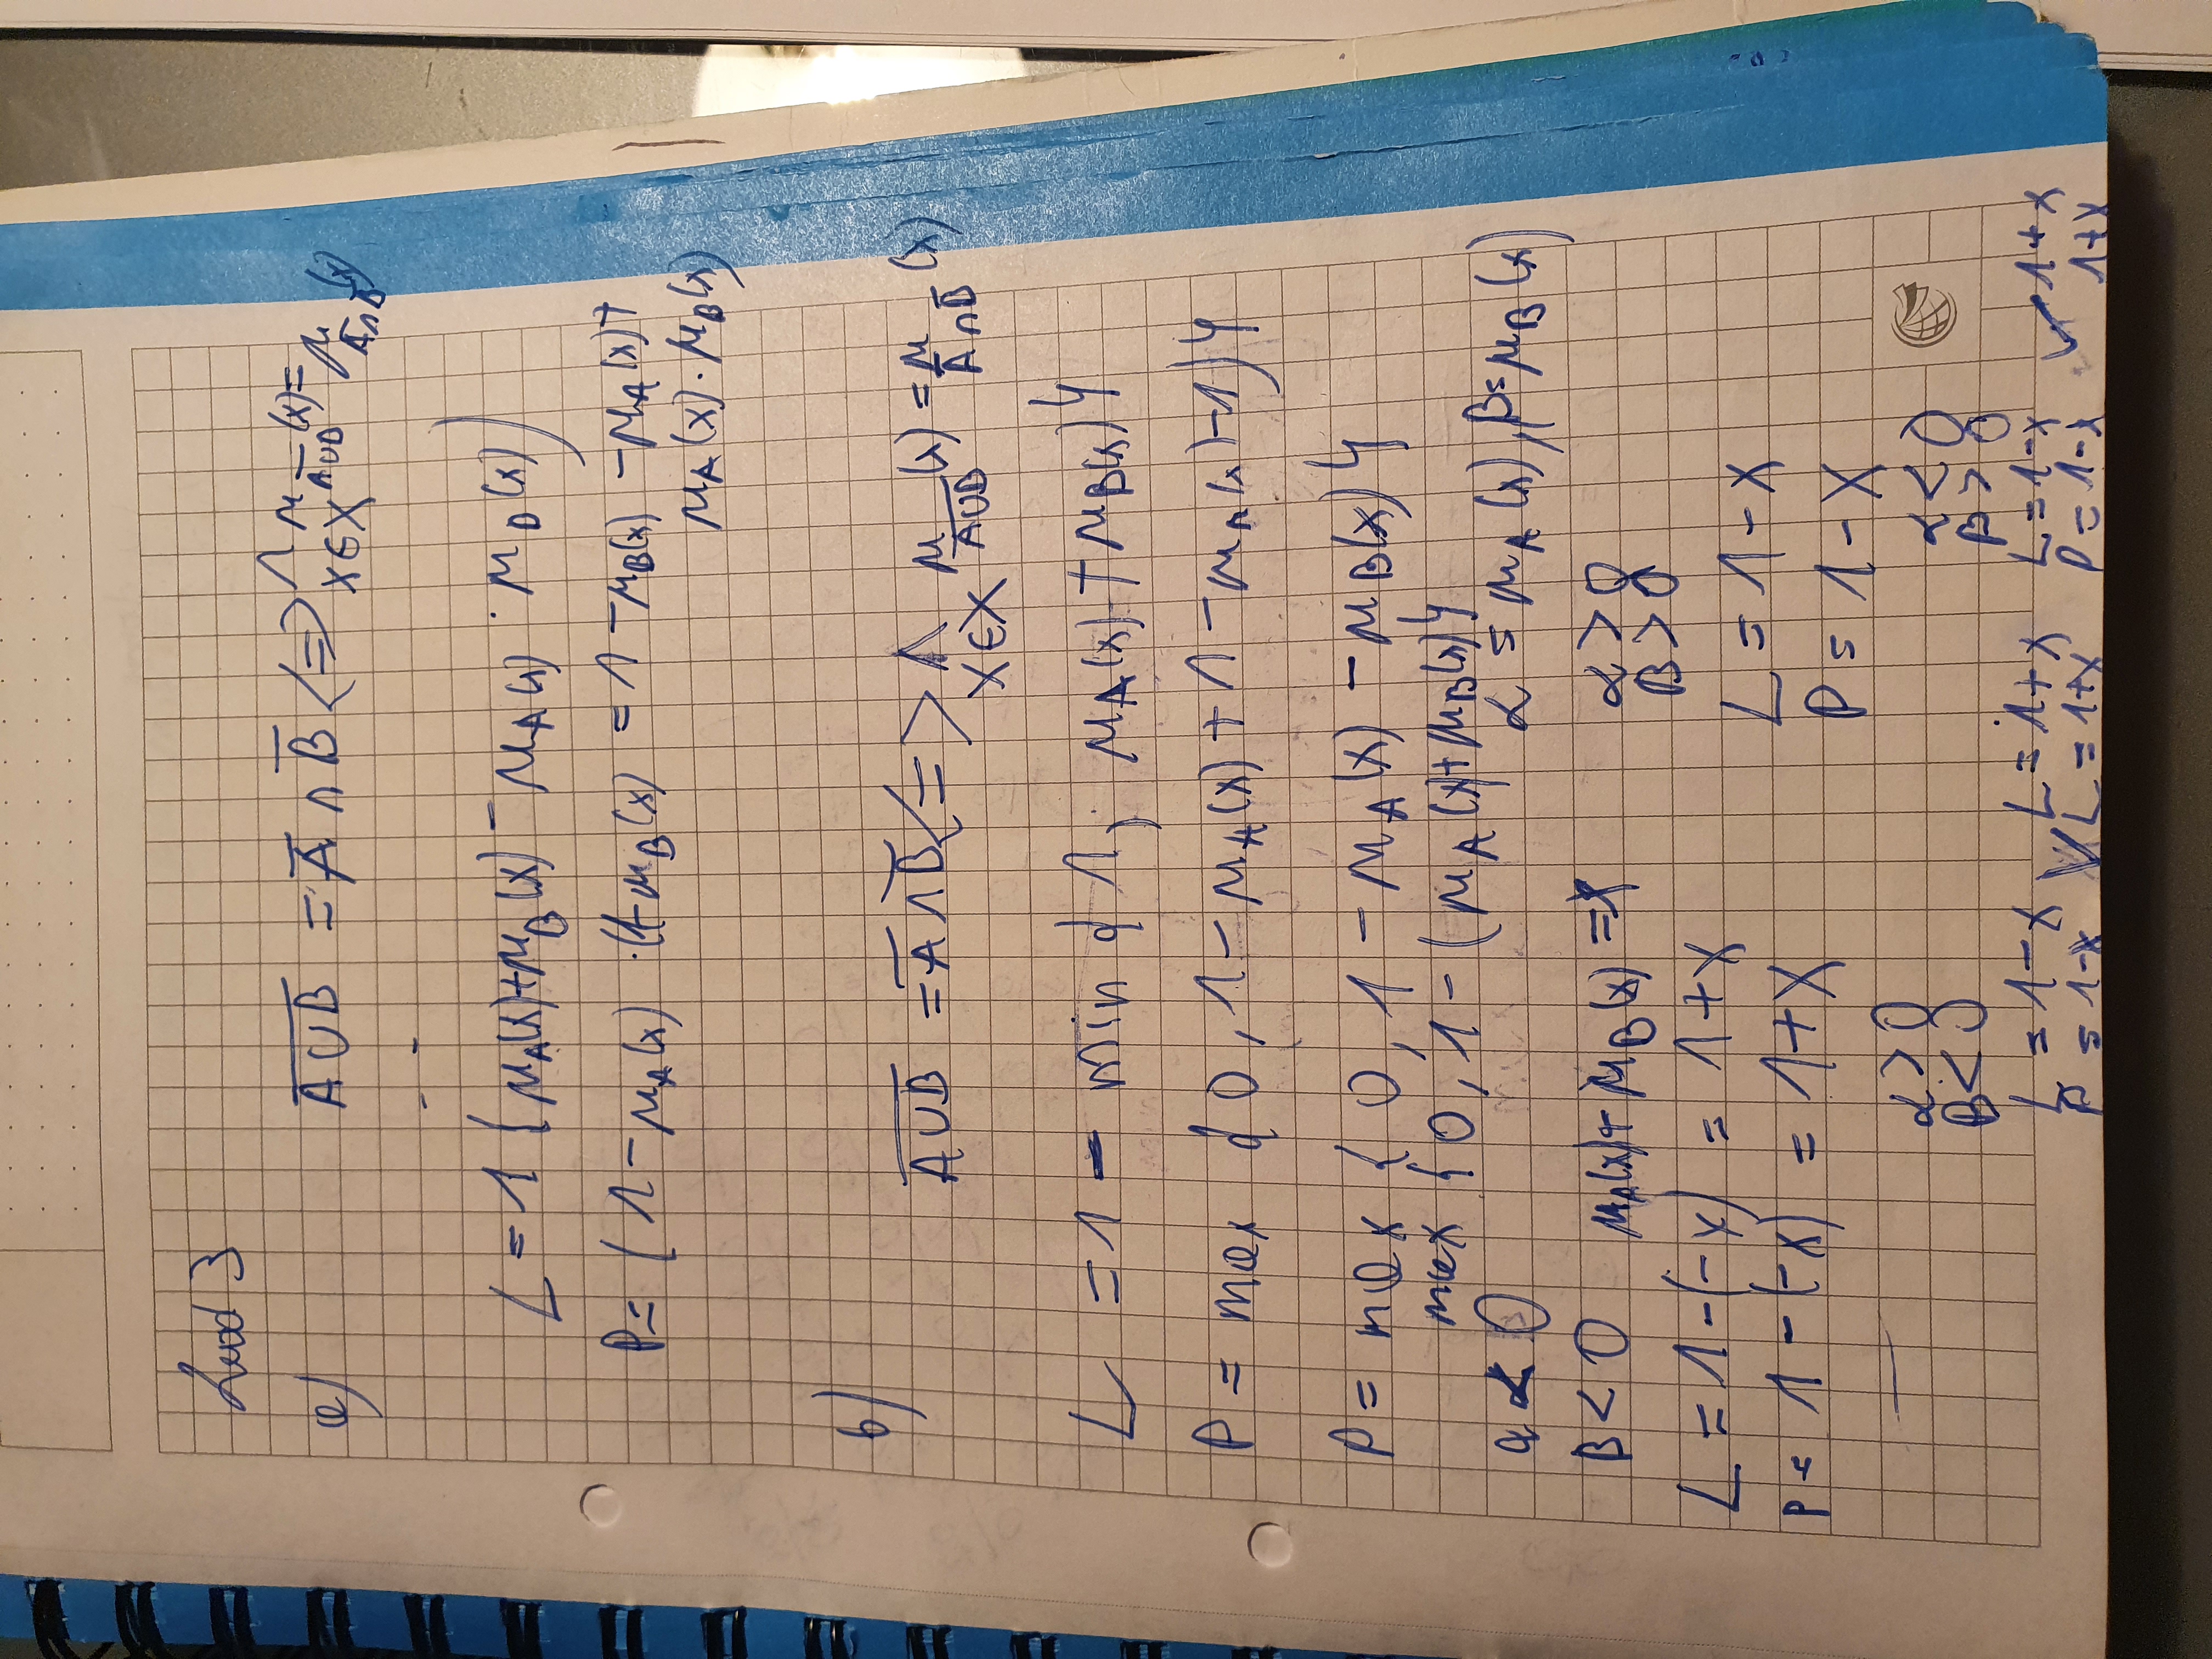 a) \overline{A∪B} = \overline{A} ∩ \overline{B} <=> ⋀_{x∈X} μ_{\overline{A∪B}}(x) = μ_{\overline{A}∩\overline{B}}(x)
L = 1 (μ_A(x)+μ_B(x) - μ_A(x) · μ_B(x))
P = (1 - μ_A(x)) · (1-μ_B(x) = 1 - μ_B(x) - μ_A(x) +
μ_A(x) · μ_B(x)
b)
\overline{A∪B} = \overline{A} ∩ \overline{B} <=> ⋀_{x∈X} μ_{\overline{A∪B}}(x) = μ_{\overline{A}∩\overline{B}}(x)
L = 1 - min {1; μ_A(x) + μ_B(x)}
P = max {0, 1 - μ_A(x) + 1 - μ_B(x) - 1)}
P = max {0, 1 - μ_A(x) - μ_B(x)}
max {0, 1 - (μ_A(x) + μ_B(x)}
α < 0
α = μ_A(x), β = μ_B(x)
B < 0 μ_A(x) + μ_B(x) = x
α > 0
B > 0
L = 1 - (-x) = 1 + x
L = 1 - x
P = 1 - (-x) = 1 + x
P = 1 - x
α > 0
B < 0
α < 0
B > 0
L = 1 - x ∨ L = 1 + x
P = 1 - x L = 1 + x
L = 1 - x ∨ 1 + x
P = 1 - x 1 + x